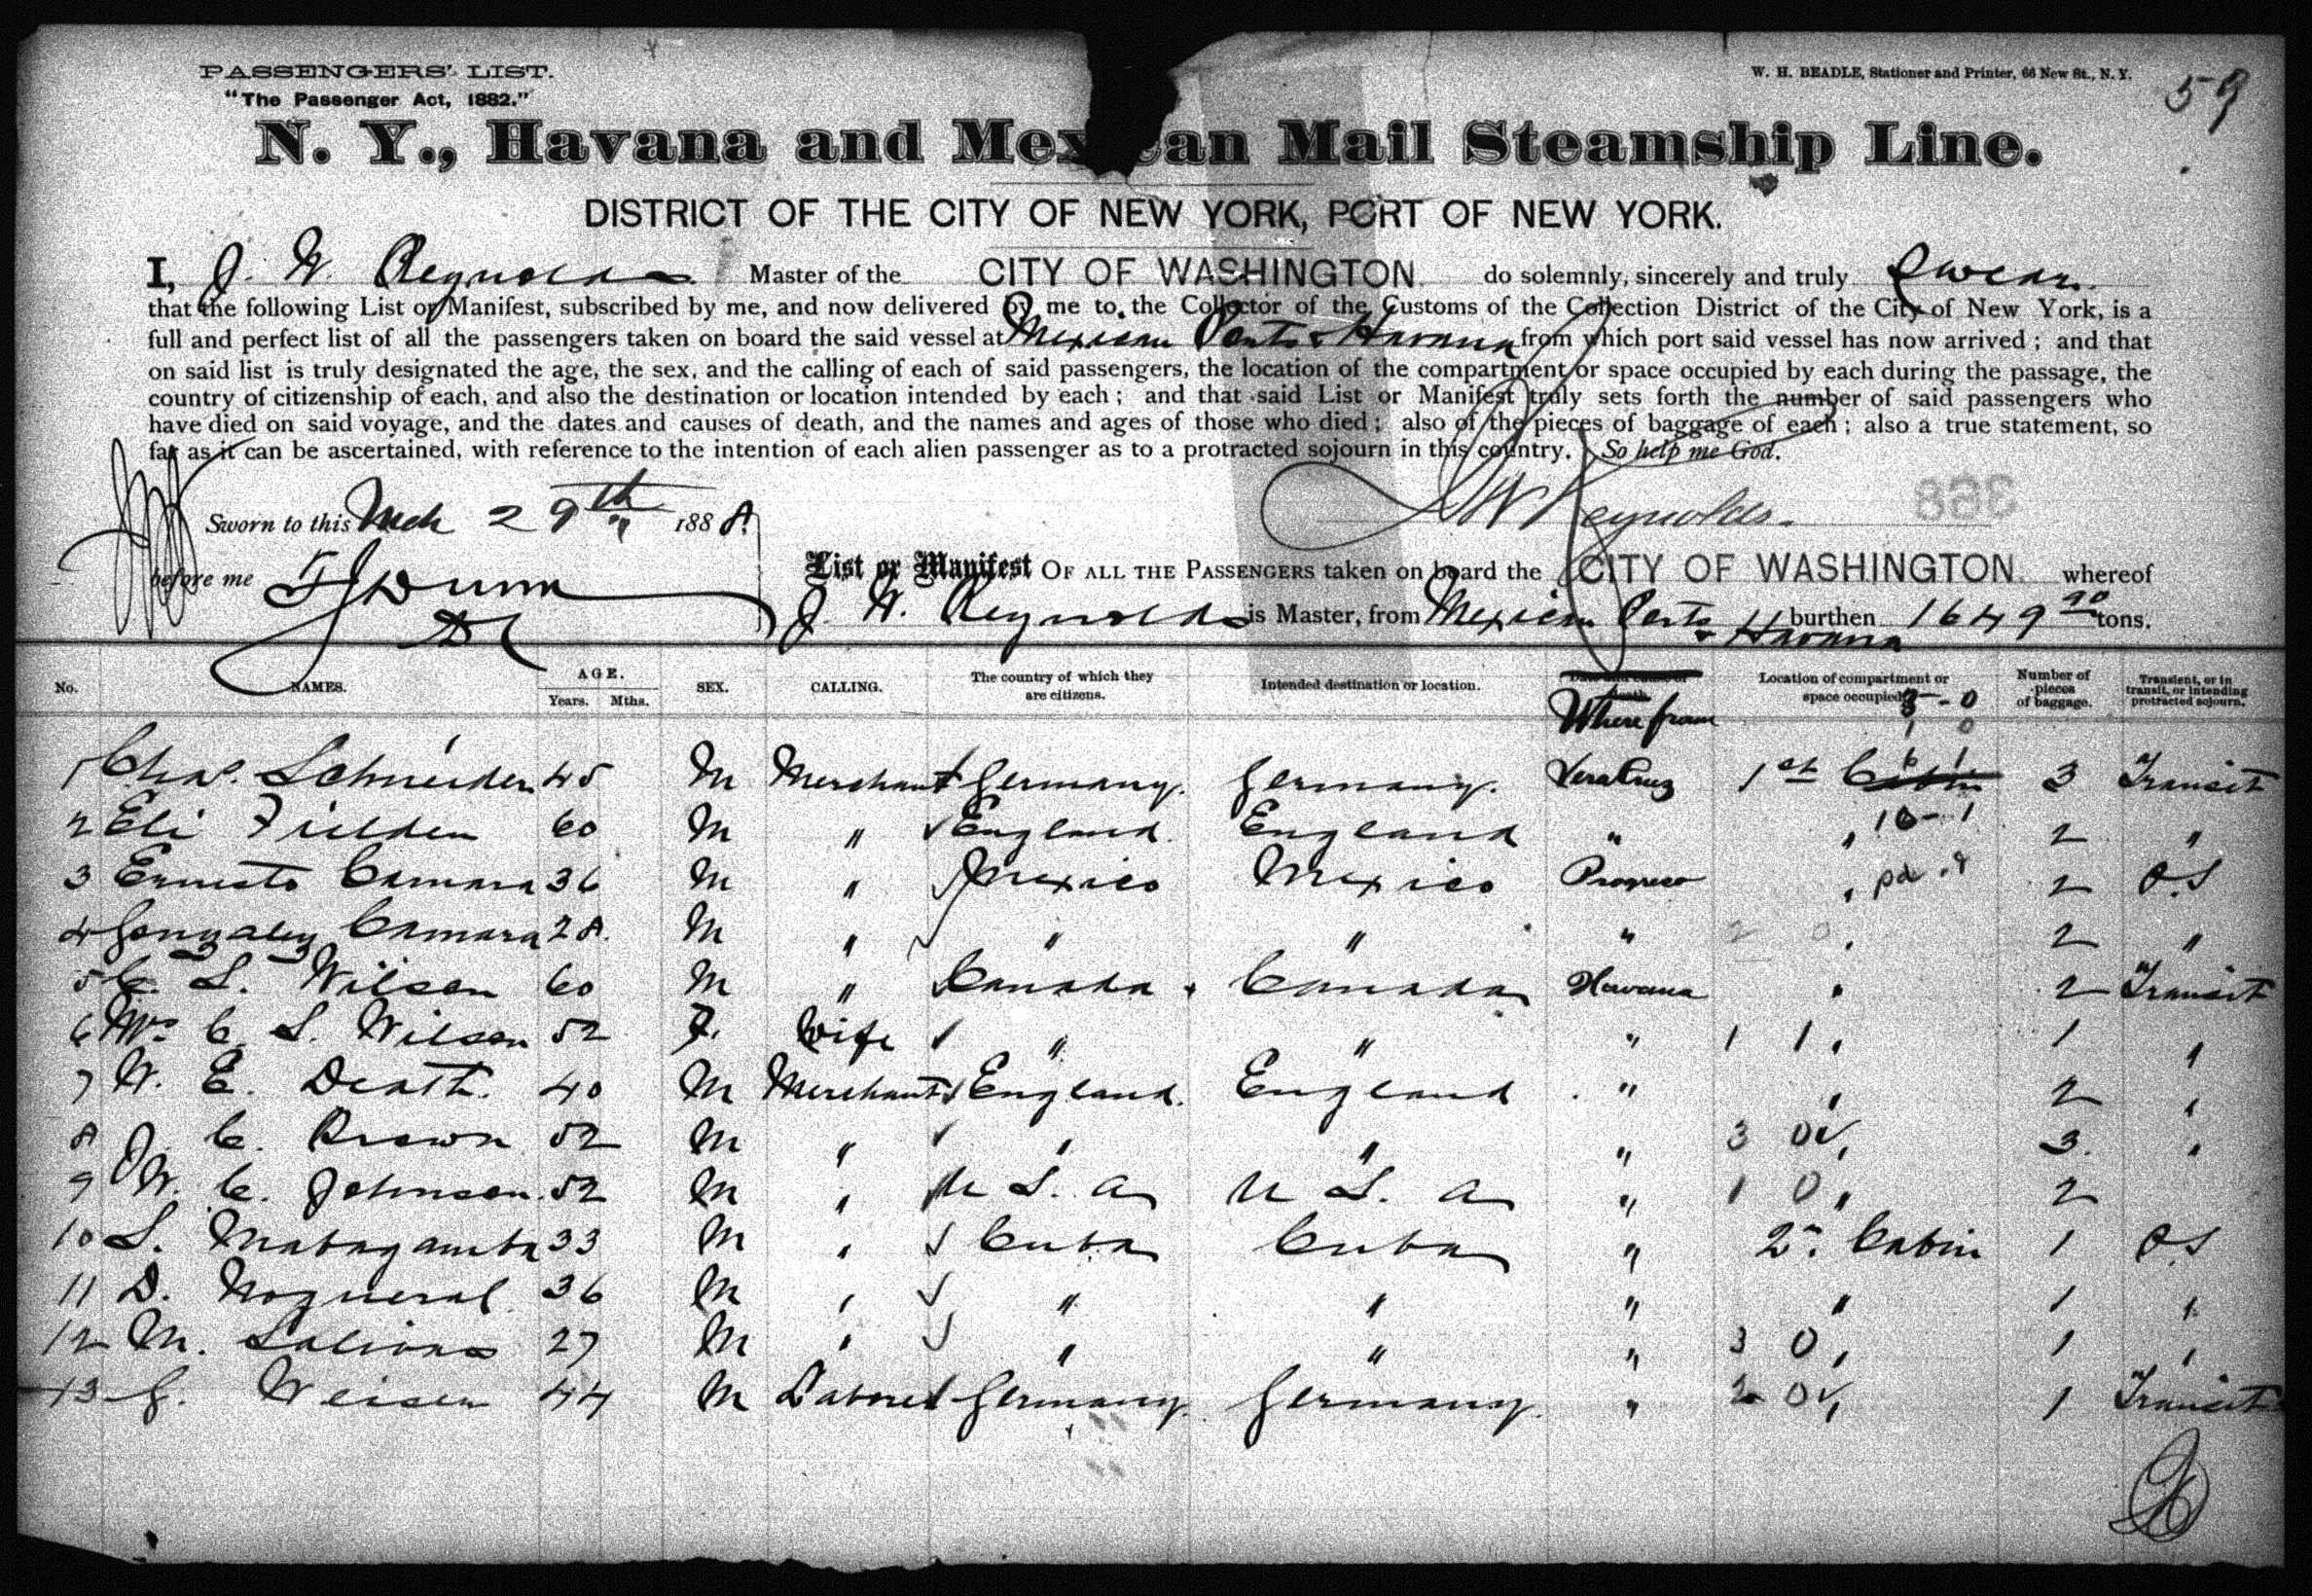 PASSENGERS' LIST.
"The Passenger Act, 1882."
W. H. BEADLE, Stationer and Printer, 66 New St., N. Y.
59
N. Y., Havana and Mexican Mail Steamship Line.
DISTRICT OF THE CITY OF NEW YORK, PORT OF NEW YORK.
I, J. W. Reynolds Master of the CITY OF WASHINGTON. do solemnly, sincerely and truly Swear
that the following List or Manifest, subscribed by me, and now delivered by me to the Collector of the Customs of the Collection District of the City of New York, is a
full and perfect list of all the passengers taken on board the said vessel at Mexican Ports & Havana from which port said vessel has now arrived; and that
on said list is truly designated the age, the sex, and the calling of each of said passengers, the location of the compartment or space occupied by each during the passage, the
country of citizenship of each, and also the destination or location intended by each; and that said List or Manifest truly sets forth the number of said passengers who
have died on said voyage, and the dates and causes of death, and the names and ages of those who died; also of the pieces of baggage of each; also a true statement, so
far as it can be ascertained, with reference to the intention of each alien passenger as to a protracted sojourn in this country. So help me God.
368
Sworn to this Mch 29th 1888. J W Reynolds.
before me F J Dunn
List or Manifest OF ALL THE PASSENGERS taken on board the CITY OF WASHINGTON. whereof
J. W. Reynolds is Master, from Mexican Ports & Havana burthen 1649 90 tons.
No. NAMES. AGE. Years. Mths. SEX. CALLING. The country of which they are citizens. Intended destination or location. Where from Location of compartment or space occupied Number of pieces of baggage. Transient, or in transit, or intending protracted sojourn.
1 Chas. Schneider 45 M Merchant Germany. Germany. Vera Cruz 1st Cabin 3 Transit
2 Eli Fielden 60 M " England. England " " 10-1 2 "
3 Ernesto Camara 36 M " Mexico Mexico Progreso " pd. 2 P.S
4 Gonzalez Camara 28. M " " " " 2 0 " 2 "
5 C. S. Wilson 60 M " Canada Canada Havana " 2 Transit
6 Mrs C. S. Wilson 52 F. Wife " " " 1 1 " 1 "
7 W. E. Death. 40 M Merchant England. England " " 2 "
8 J. C. Brown 52 M " " " " 3 0 " 3. "
9 W. C. Johnson. 52 M " U S. A U S. A " 1 0 " 2
10 S. Matagamba 33 M " Cuba Cuba " 2n. Cabin 1 P.S
11 D. Nogueral 36 M " " " " " 1 "
12 M. Salivas 27 M " " " " 3 0 " 1 "
13 G. Weisen 44 M Laborer Germany. Germany. " 2 0 " 1 Transit